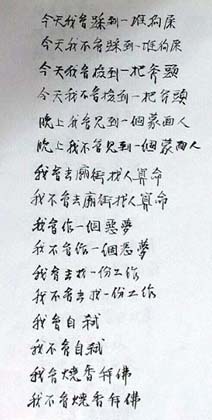 今天我會踩到一堆狗屎
今天我不會踩到一堆狗屎
今天我會撿到一把斧頭
今天我不會撿到一把斧頭
晚上我會見到一個蒙面人
晚上我不會見到一個蒙面人
我會去廟街找人算命
我不會去廟街找人算命
我會作一個惡夢
我不會作一個惡夢
我會去找一份工作
我不會去找一份工作
我會自弒
我不會自弒
我會燒香拜佛
我不會燒香拜佛